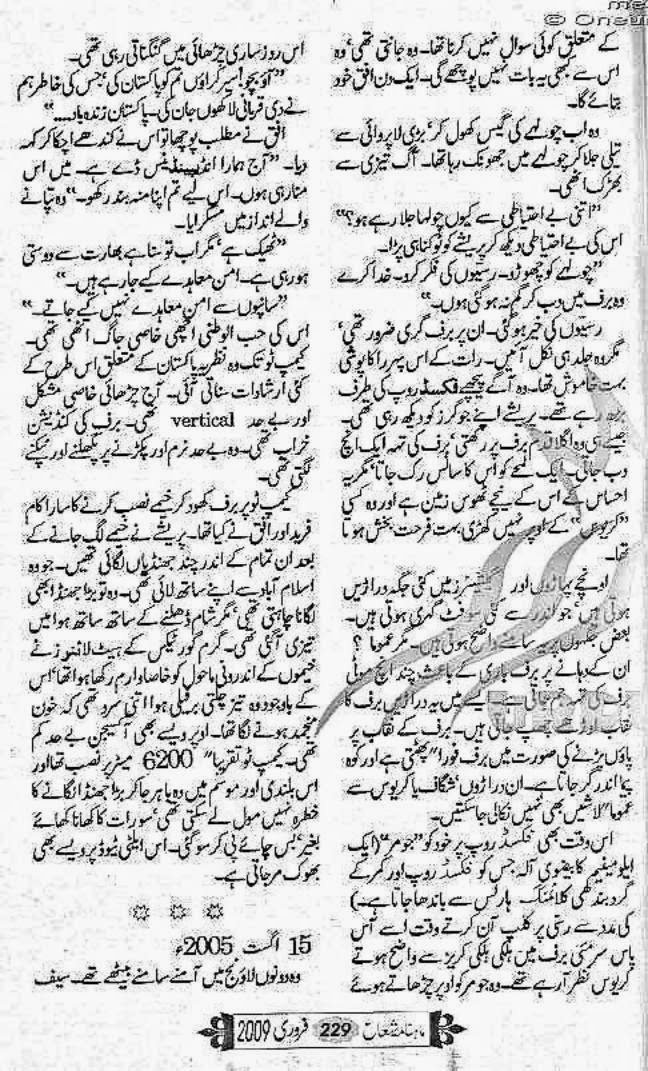 © Oneu
کے متعلق کوئی سوال نہیں کرنا تھا۔ وہ جانتی تھی، وہ
اس سے کبھی یہ بات نہیں پوچھے گی۔ ایک دن افق خود
بتائے گا۔
وہ اب چولہے کی گیس کھول کر، بڑی لاپروائی سے
تیلی جلا کر چولہے میں جھونک رہا تھا۔ آگ تیزی سے
بھڑک اٹھی۔
”اتنی بے احتیاطی سے کیوں چولہا جلا رہے ہو؟“
اس کی بے احتیاطی دیکھ کر پریشے کو ٹوکنا ہی پڑا۔
”چولہے کو چھوڑو۔ رسیوں کی فکر کرو۔ خدا کرے
وہ برف میں دب کر گم نہ ہو گئی ہوں۔“
رسیوں کی خیر ہو گئی۔ ان پر برف گری ضرور تھی،
مگر وہ جلد ہی نکل آئیں۔ رات کے اس پہر راکاپوشی
بہت خاموش تھا۔ وہ آگے پیچھے فکسڈ روپ کی طرف
بڑھ رہے تھے۔ پریشے اپنے جوگرز کو دیکھ رہی تھی۔
جیسے ہی وہ اگلا قدم برف پر رکھتی، برف کی تہہ ایک انچ
دب جاتی۔ ایک لمحے کو اس کا سانس رک جاتا، مگر یہ
احساس کے اس کے نیچے ٹھوس زمین ہے اور وہ کسی
”کریوس“ کے اوپر نہیں کھڑی بہت فرحت بخش ہوتا
تھا۔
اونچے پہاڑوں اور گلیشئرز میں کئی جگہ دراڑیں
ہوتی ہیں، جو اندر سے کئی سو فٹ گہری ہوتی ہیں۔
بعض جگہوں پر یہ سامنے واضح ہوتی ہیں۔ مگر عموما ؟
ان کے دہانے پر برف باری کے باعث چند انچ موٹی
برف کی تہہ جم جاتی ہے۔ ایسے میں یہ دراڑیں برف کا
نقاب اوڑھے چھپ جاتی ہیں۔ برف کے نقاب پر
پاؤں پڑنے کی صورت میں برف فورا“ پھٹتی ہے اور کوہ
پیما اندر گر جاتا ہے۔ ان دراڑوں، شگاف یا کریوس سے
عموما“ لاشیں بھی نہیں نکالی جا سکتیں۔
اس وقت بھی فکسڈ روپ پر خود کو ”جومر“ (ایک
ایلومینیم کا بیضوی آلہ جس کو فکسڈ روپ اور کمر کے
گرد بندھی کلائمنگ ہارنس سے باندھا جاتا ہے۔)
کی مدد سے رسی پر کلپ آن کرتے وقت اسے آس
پاس سرمئی برف میں ہلکی ہلکی کریز سے واضح ہوتے
کریوس نظر آ رہے تھے۔ وہ جومر کو اوپر چڑھاتے ہوئے
اس روز ساری چڑھائی میں گنگناتی رہی تھی۔
”آؤ بچو! سیر کراؤں تم کو پاکستان کی، جس کی خاطر ہم
نے دی قربانی لاکھوں جان کی۔ پاکستان زندہ باد....“
افق نے مطلب پوچھا تو اس نے کندھے اچکا کر کہہ
دیا۔ ”آج ہمارا انڈیپنڈینس ڈے ہے۔ میں اس
منا رہی ہوں۔ اس لیے تم اپنا منہ بند رکھو۔“ وہ تپانے
والے انداز میں مسکرایا۔
”ٹھیک ہے، مگر اب تو سنا ہے بھارت سے دوستی
ہو رہی ہے۔ امن معاہدے کیے جا رہے ہیں۔“
”سانپوں سے امن معاہدے نہیں کیے جاتے۔“
اس کی حب الوطنی اچھی خاصی جاگ اٹھی تھی۔
کیمپ ٹو تک وہ نظریہ پاکستان کے متعلق اس طرح کے
کئی ارشادات سناتی آئی۔ آج چڑھائی خاصی مشکل
اور بے حد vertical تھی۔ برف کی کنڈیشن
خراب تھی۔ وہ بے حد نرم اور پکڑنے پر پگھلنے اور ٹپکنے
لگتی تھی۔
کیمپ ٹو پر برف کھود کر خیمے نصب کرنے کا سارا کام
فرید اور افق نے کیا تھا۔ پریشے نے خیمے لگ جانے کے
بعد ان تمام کے اندر چند جھنڈیاں لگائی تھیں۔ جو وہ
اسلام آباد سے اپنے ساتھ لائی تھی۔ وہ تو بڑا جھنڈا بھی
لگانا چاہتی تھی، مگر شام ڈھلنے کے ساتھ ساتھ ہوا میں
تیزی آ گئی تھی۔ گرم گورٹیکس کے ہیٹ لائنوز نے
خیموں کے اندرونی ماحول کو خاصا وارم رکھا ہوا تھا، اس
کے باوجود وہ تیز چلتی برفیلی ہوا اتنی سرد تھی کہ خون
منجمد ہونے لگا تھا۔ اوپر ویسے بھی آکسیجن بے حد کم
تھی۔ کیمپ ٹو تقریبا“ 6200 میٹر پر نصب تھا اور
اس بلندی اور موسم میں وہ باہر جا کر بڑا جھنڈا لگانے کا
خطرہ نہیں مول لے سکتی تھی، سو رات کا کھانا کھائے
بغیر، بس چائے پی کر سو گئی۔ اس ایلٹی ٹیوڈ پر ویسے بھی
بھوک مر جاتی ہے۔
15 اگست 2005ء
وہ دونوں لاؤنج میں آمنے سامنے بیٹھے تھے۔ سیف
ماہنامہ شعاع 229 فروری 2009